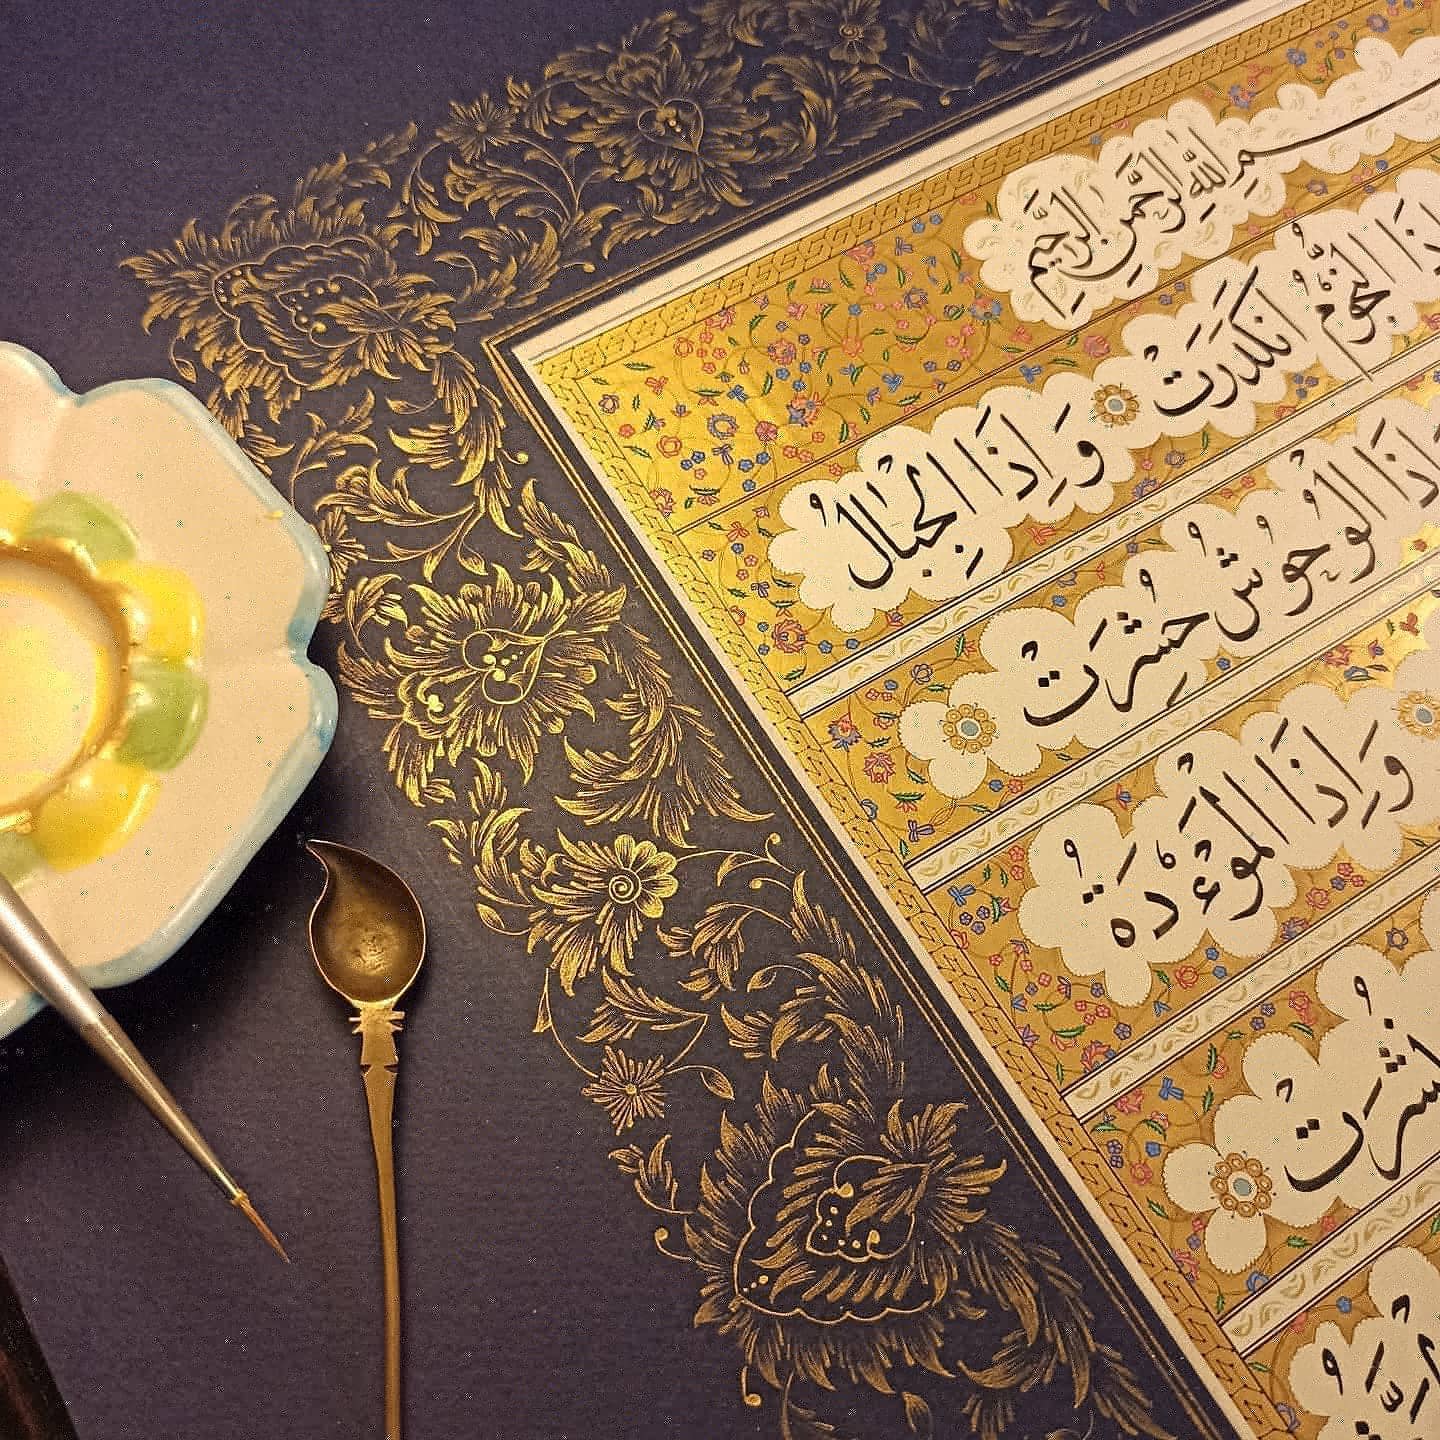 بِسْمِ اللَّهِ الرَّحْمٰنِ الرَّحِيمِ
إِذَا النُّجُومُ انْكَدَرَتْ وَإِذَا الْجِبَالُ
إِذَا الْوُحُوشُ حُشِرَتْ
وَإِذَا الْمَوْءُدَةُ
نُشِرَتْ